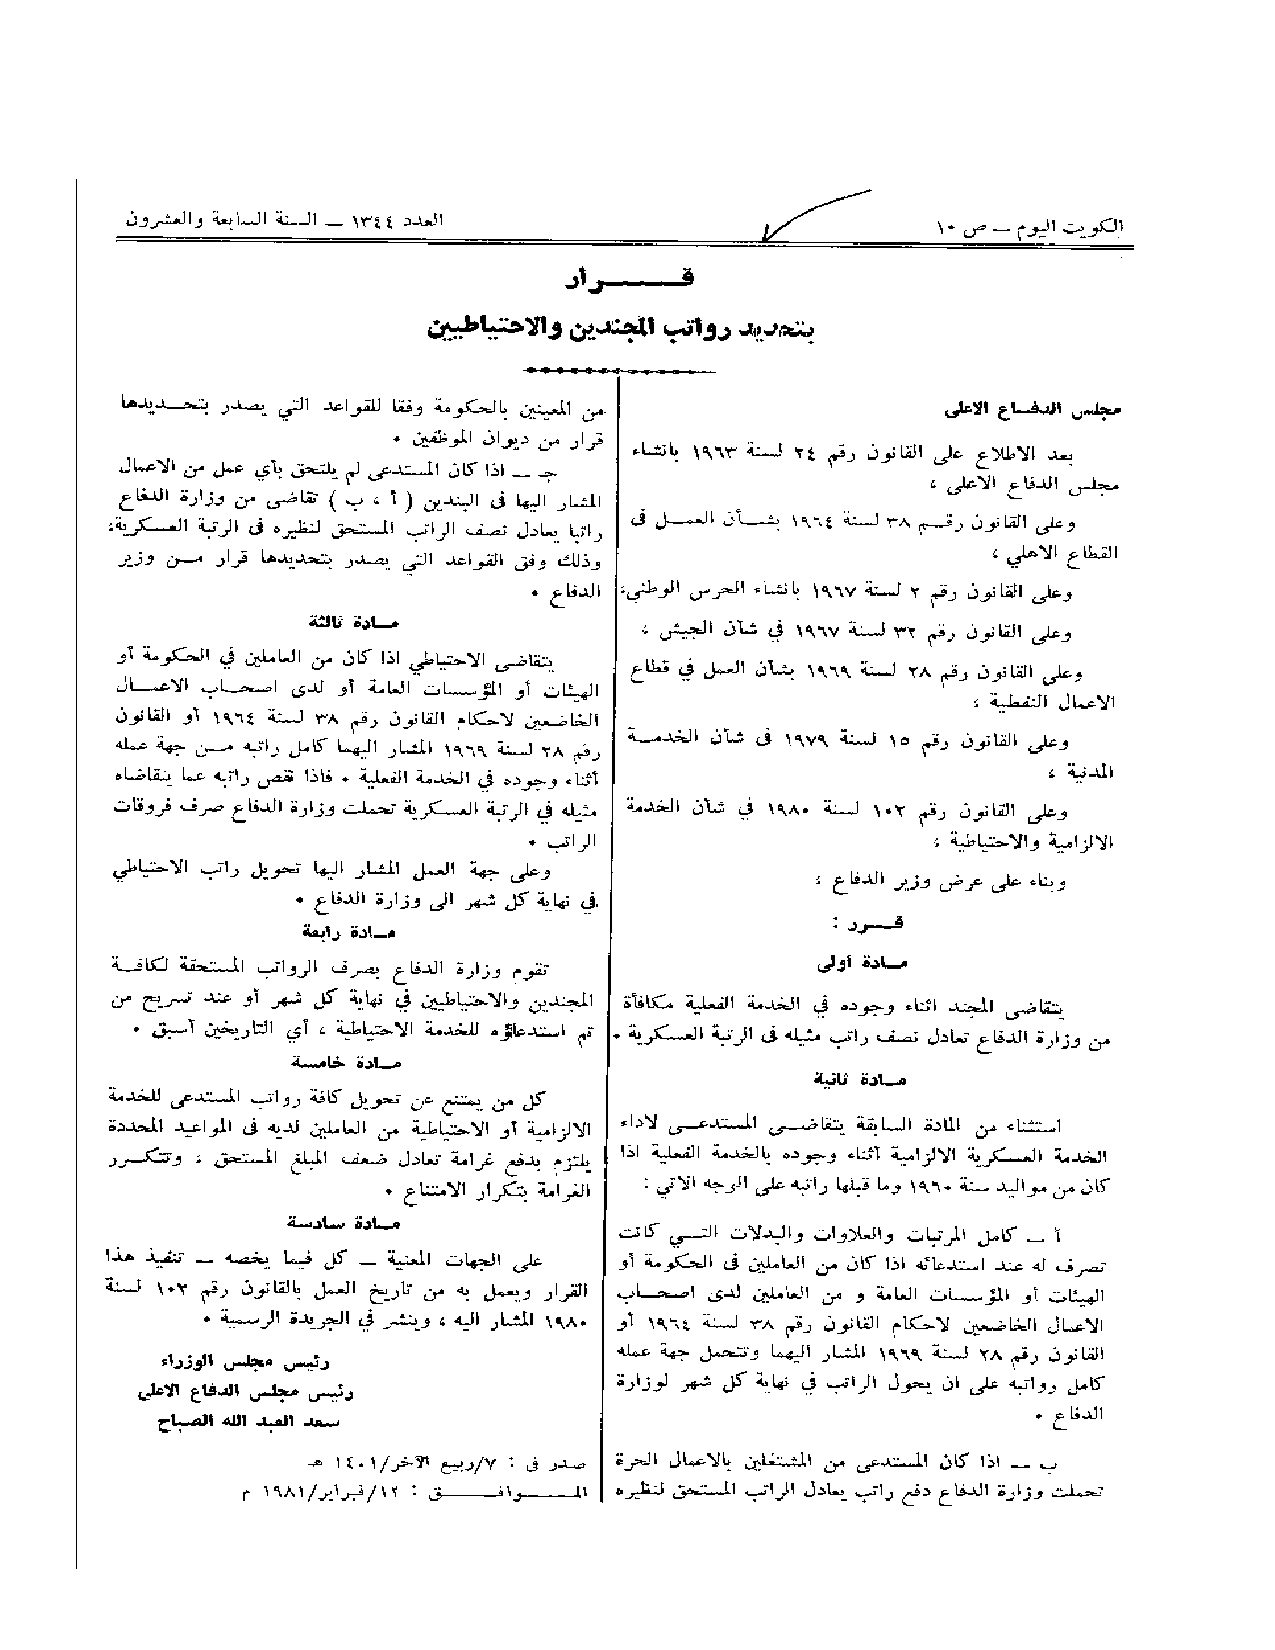 الكويت اليوم — ص ١٠
العدد ١٣٤٤ — السنة السابعة والعشرون
قـــــــرار
بتحديد رواتب المجندين والاحتياطيين
مجلس الدفـاع الاعلى
بعد الاطلاع على القانون رقم ٢٤ لسنة ١٩٦٣ بانشـاء
مجلس الدفاع الاعلى ؛
وعلى القانون رقـم ٣٨ لسنة ١٩٦٤ بشـأن العمـل فى
القطاع الاهلي ؛
وعلى القانون رقم ٢ لسنة ١٩٦٧ بانشاء الحرس الوطني؛
وعلى القانون رقم ٣٢ لسنة ١٩٦٧ في شأن الجيش ؛
وعلى القانون رقم ٢٨ لسنة ١٩٦٩ بشأن العمل في قطاع
الاعمال النفطية ؛
وعلى القانون رقم ١٥ لسنة ١٩٧٩ فى شأن الخدمـة
المدنية ؛
وعلى القانون رقم ١٠٢ لسنة ١٩٨٠ في شأن الخدمة
الالزامية والاحتياطية ؛
وبناء على عرض وزير الدفاع ؛
قـــرر :
مــادة أولى
يتقاضى المجند اثناء وجوده في الخدمة الفعلية مكافأة
من وزارة الدفاع تعادل نصف راتب مثيله فى الرتبة العسكرية •
مــادة ثانية
استثناء من المادة السابقة يتقاضـى المستدعـى لاداء
الخدمة العسكرية الالزامية أثناء وجوده بالخدمة الفعلية اذا
كان من مواليد سنة ١٩٦٠ وما قبلها راتبه على الوجه الآتي :
أ — كامل المرتبات والعلاوات والبدلات التــي كانت
تصرف له عند استدعائه اذا كان من العاملين فى الحكومة أو
الهيئات أو المؤسسات العامة و من العاملين لدى اصحـاب
الاعمال الخاضعين لاحكام القانون رقم ٣٨ لسنة ١٩٦٤ أو
القانون رقم ٢٨ لسنة ١٩٦٩ المشار اليهما وتتحمل جهة عمله
كامل رواتبه على ان يحول الراتب في نهاية كل شهر لوزارة
الدفاع •
ب — اذا كان المستدعى من المشتغلين بالاعمال الحرة
تحملت وزارة الدفاع دفع راتب يعادل الراتب المستحق لنظيره
من المعينين بالحكومة وفقا للقواعد التي يصدر بتحـديدها
قرار من ديوان الموظفين •
جـ — اذا كان المستدعى لم يلتحق بأي عمل من الاعمال
المشار اليها فى البندين ( أ ، ب ) تقاضى من وزارة الدفاع
راتبا يعادل نصف الراتب المستحق لنظيره فى الرتبة العسكرية؛
وذلك وفق القواعد التي يصدر بتحديدها قرار مـن وزير
الدفاع •
مــادة ثالثة
يتقاضى الاحتياطي اذا كان من العاملين في الحكومة أو
الهيئات أو المؤسسات العامة أو لدى اصحـاب الاعمـال
الخاضعين لاحكام القانون رقم ٣٨ لسنة ١٩٦٤ أو القانون
رقم ٢٨ لسنة ١٩٦٩ المشار اليهما كامل راتبه مـن جهة عمله
أثناء وجوده في الخدمة الفعلية • فاذا نقص راتبه عما يتقاضاه
مثيله في الرتبة العسكرية تحملت وزارة الدفاع صرف فروقات
الراتب •
وعلى جهة العمل المشار اليها تحويل راتب الاحتياطي
في نهاية كل شهر الى وزارة الدفاع •
مــادة رابعة
تقوم وزارة الدفاع بصرف الرواتب المستحقة لكافـة
المجندين والاحتياطيين في نهاية كل شهر أو عند تسريح من
تم استدعاؤه للخدمة الاحتياطية ؛ أي التاريخين أسبق •
مــادة خامسة
كل من يمتنع عن تحويل كافة رواتب المستدعى للخدمة
الالزامية أو الاحتياطية من العاملين لديه فى المواعيد المحددة
يلتزم بدفع غرامة تعادل ضعف المبلغ المستحق ؛ وتتكـرر
الغرامة بتكرار الامتناع •
مــادة سادسة
على الجهات المعنية — كل فيما يخصه — تنفيذ هذا
القرار ويعمل به من تاريخ العمل بالقانون رقم ١٠٢ لسنة
١٩٨٠ المشار اليه ؛ وينشر في الجريدة الرسمية •
رئيس مجلس الوزراء
رئيس مجلس الدفاع الاعلى
سعد العبد الله الصباح
صدر فى : ٧/ربيع الآخر/١٤٠١ هـ
المـــوافــــق : ١٢/فبراير/١٩٨١ م